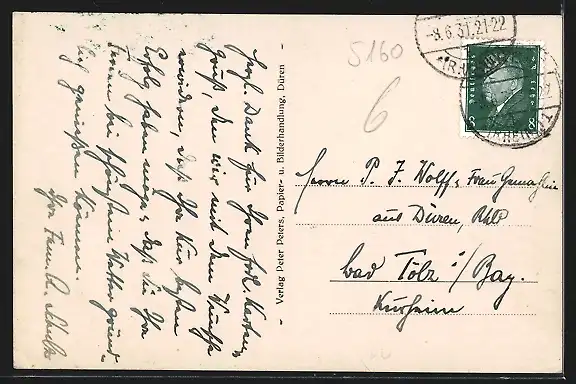 Herzl. Dank für Ihren frdl. Karten-
gruß, den wir mit dem Wunsche
erwidern, daß Ihre Kur besten
Erfolg haben möge, daß Sie Ihre
Ferien bei schönstem Wetter gründ-
lich genießen können.
Ihre Fam. A. Schulte
Verlag Peter Peters, Papier- u. Bilderhandlung, Düren
S160
6
-8.6.31.21-22
Herrn P. J. Wolff u. Frau Gemahlin
aus Düren, Rhld
bad Tölz i/Bay.
Kurheim